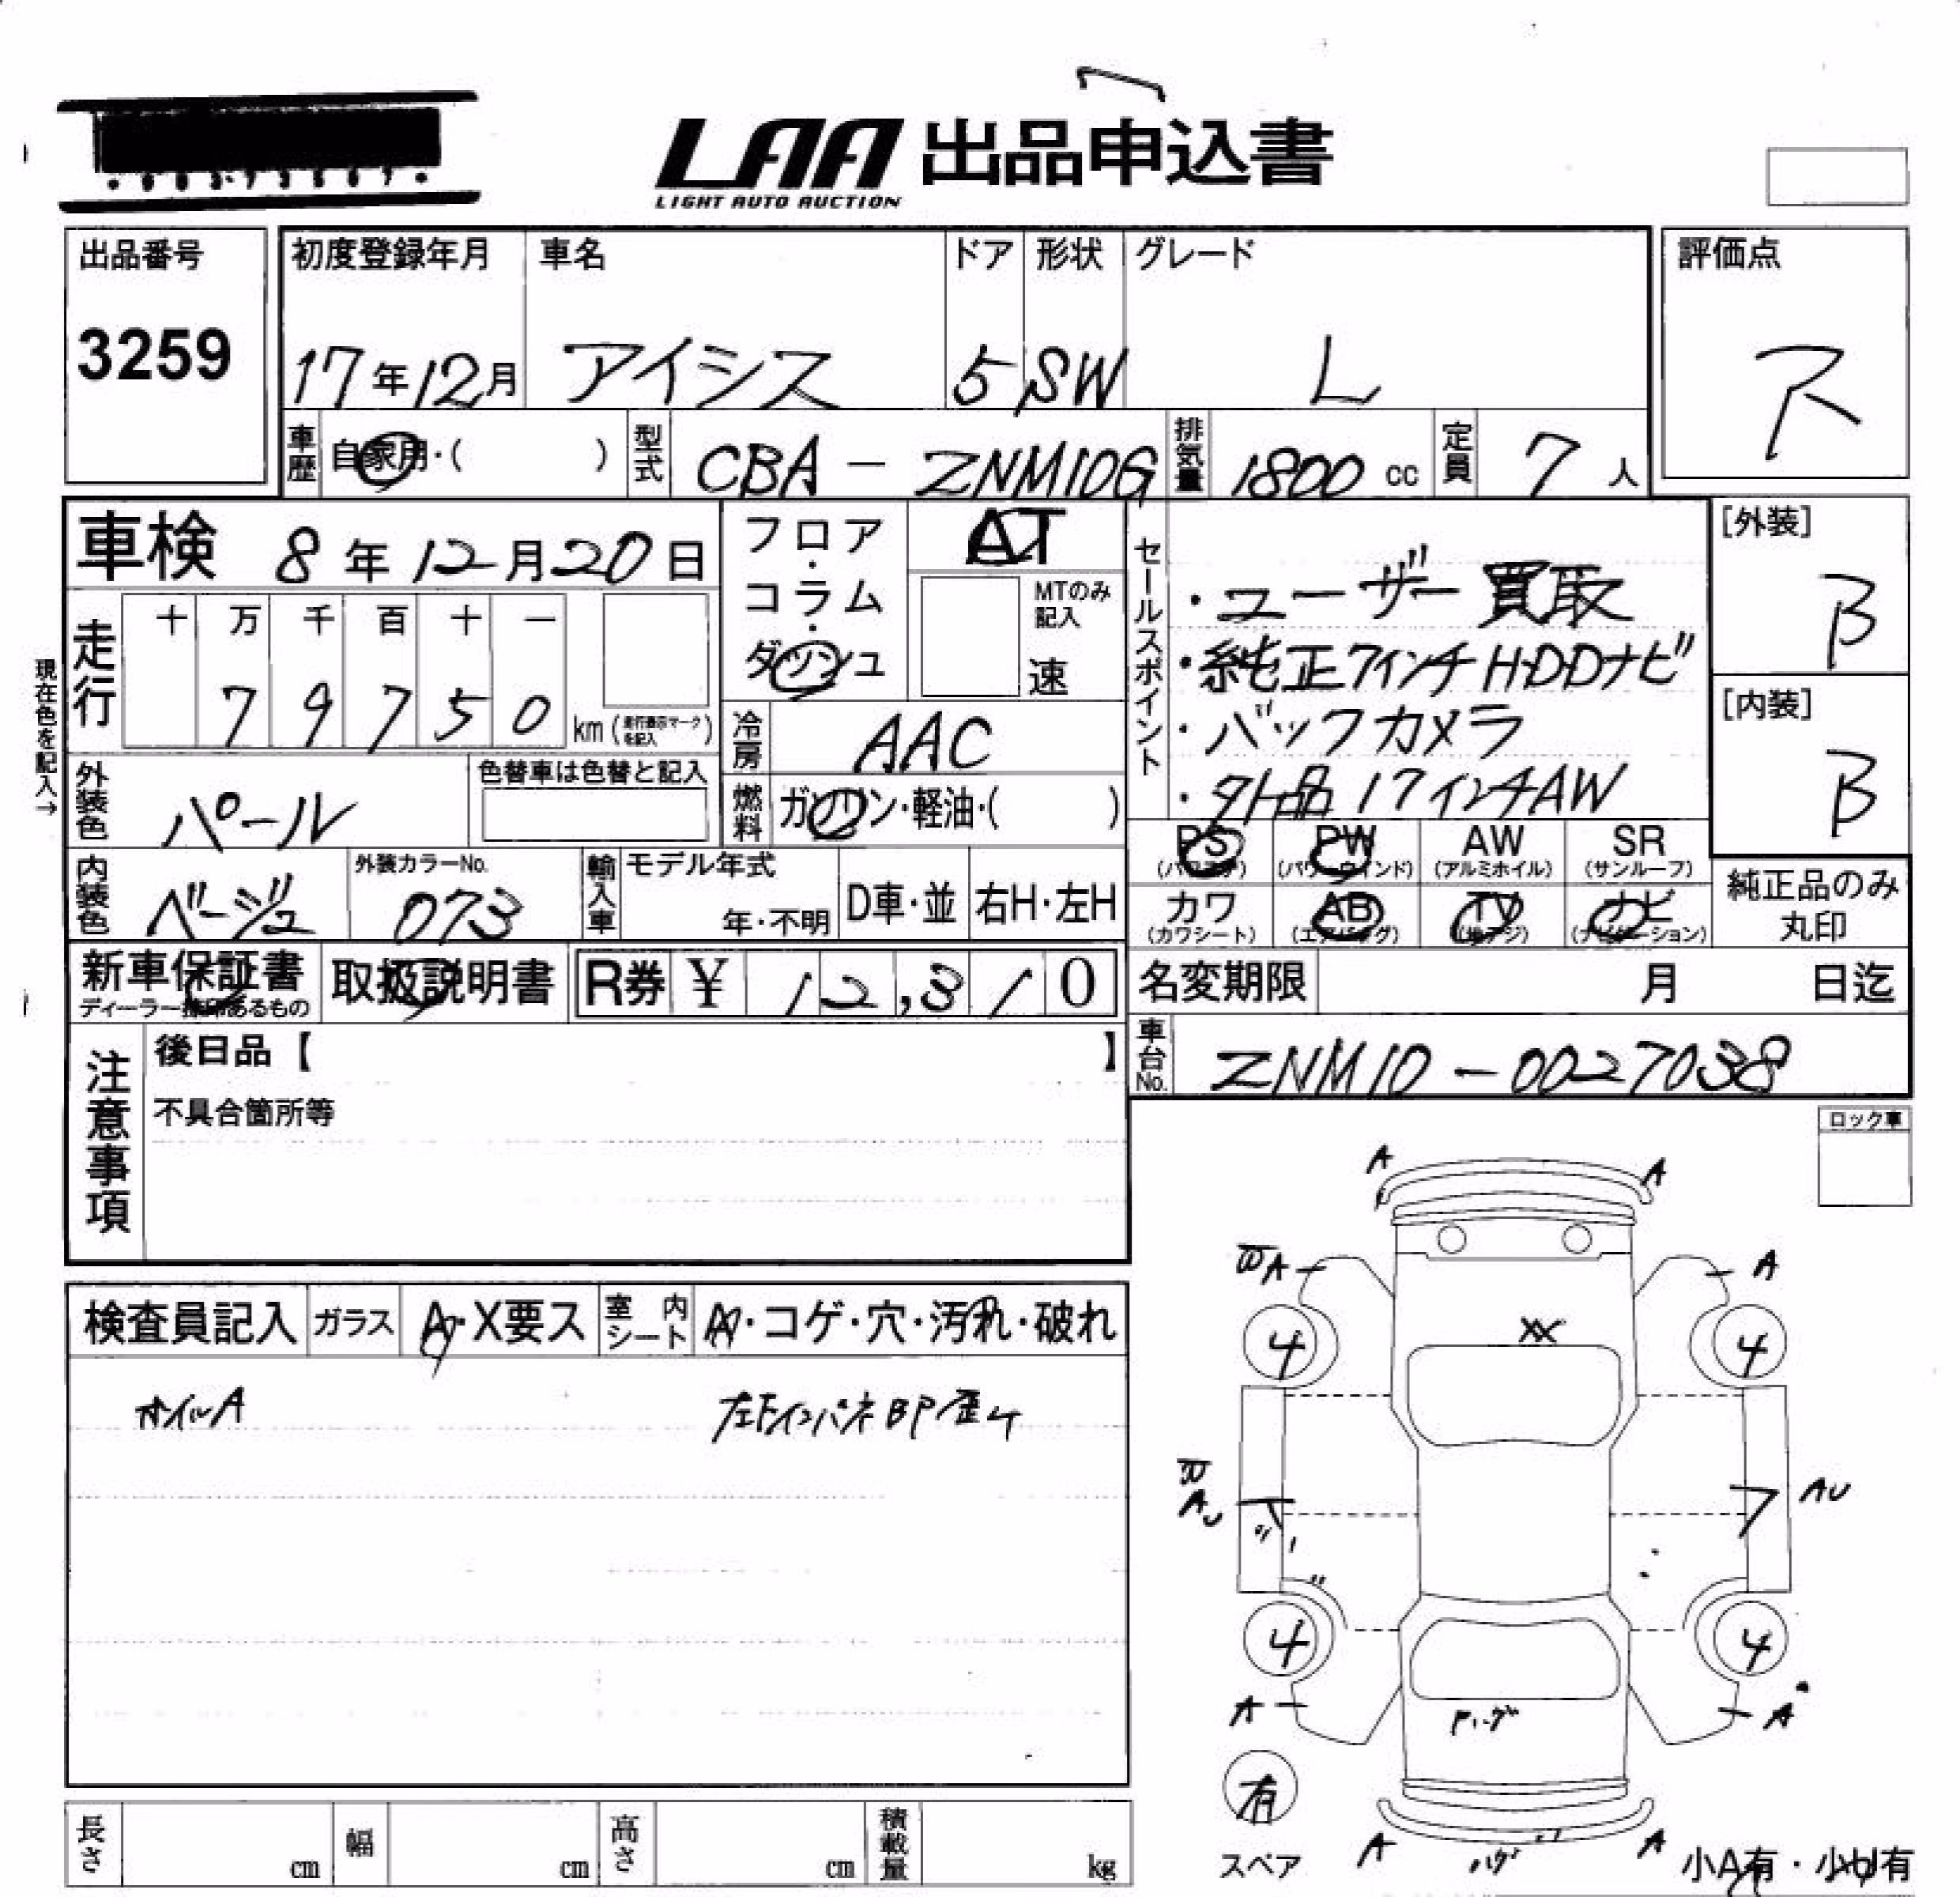 LAA 出品申込書
LIGHT AUTO AUCTION
出品番号
3259
初度登録年月
17年12月
車名
アイシス
ドア
5
形状
SW
グレード
L
評価点
R
車歴
自家用・( )
型式
CBA - ZNM10G
排気量
1800 cc
定員
7 人
車検 8年12月20日
フロア・コラム・ダッシュ
AT
MTのみ記入
速
セールスポイント
・ユーザー買取
・純正7インチHDDナビ
・バックカメラ
・外品17インチAW
[外装]
B
[内装]
B
現在色を記入→
走行
十 万 千 百 十 一
7 9 7 5 0 km (走行表示マークを記入)
冷房
AAC
外装色
パール
色替車は色替と記入
燃料
ガソリン・軽油・( )
PS PW AW SR
(パワステ) (パワーウインド) (アルミホイル) (サンルーフ)
内装色
ベージュ
外装カラーNo.
073
輸入車
モデル年式
年・不明
D車・並
右H・左H
カワ AB TV ナビ
(カワシート) (エアバッグ) (地デジ) (ナビゲーション)
純正品のみ
丸印
新車保証書
ディーラー捺印あるもの
取扱説明書
R券 ¥ 12,310
名変期限 月 日迄
車台No.
ZNM10-0027038
注意事項
後日品【 】
不具合箇所等
ロック車
検査員記入
ガラス
A・X要ス
室内シート
A・コゲ・穴・汚れ・破れ
ホイルA
左Fインパネ BP歪ケ
A A
A A
XX
4 4
AU
A
4 4
A A
有
スペア
A A
小A有・小U有
長さ cm
幅 cm
高さ cm
積載量 kg